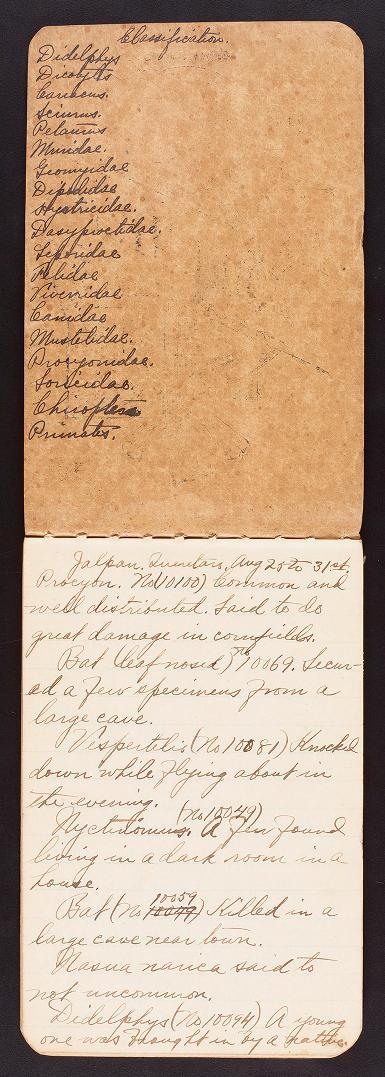 Classification.
Didelphys
Dicotyles
Cariacus.
Sciurus.
Muridae.
Geomyidae
Dipodidae
Hystricidae.
Dasyproctidae.
Leporidae
Felidae
Viverridae
Canidae
Mustelidae.
Procyonidae.
Soricidae.
Chiroptera
Primates.
Jalpan. Queretaro, Aug 25 to 31st.
Procyon. No(10100) Common and
well distributed. Said to do
great damage in cornfields.
Bat (leaf nosed) no 10069. Secur-
ed a few specimens from a
large cave.
Vespertilio (No 10081) Knocked
down while flying about in
the evening.
Nyctinomus. (No 10049) A few found
living in a dark room in a
house.
Bat (No 10049 10059) Killed in a
large cave near town.
Nasua narica said to
not uncommon.
Didelphys (No 10094) A young
one was brought in by a native.